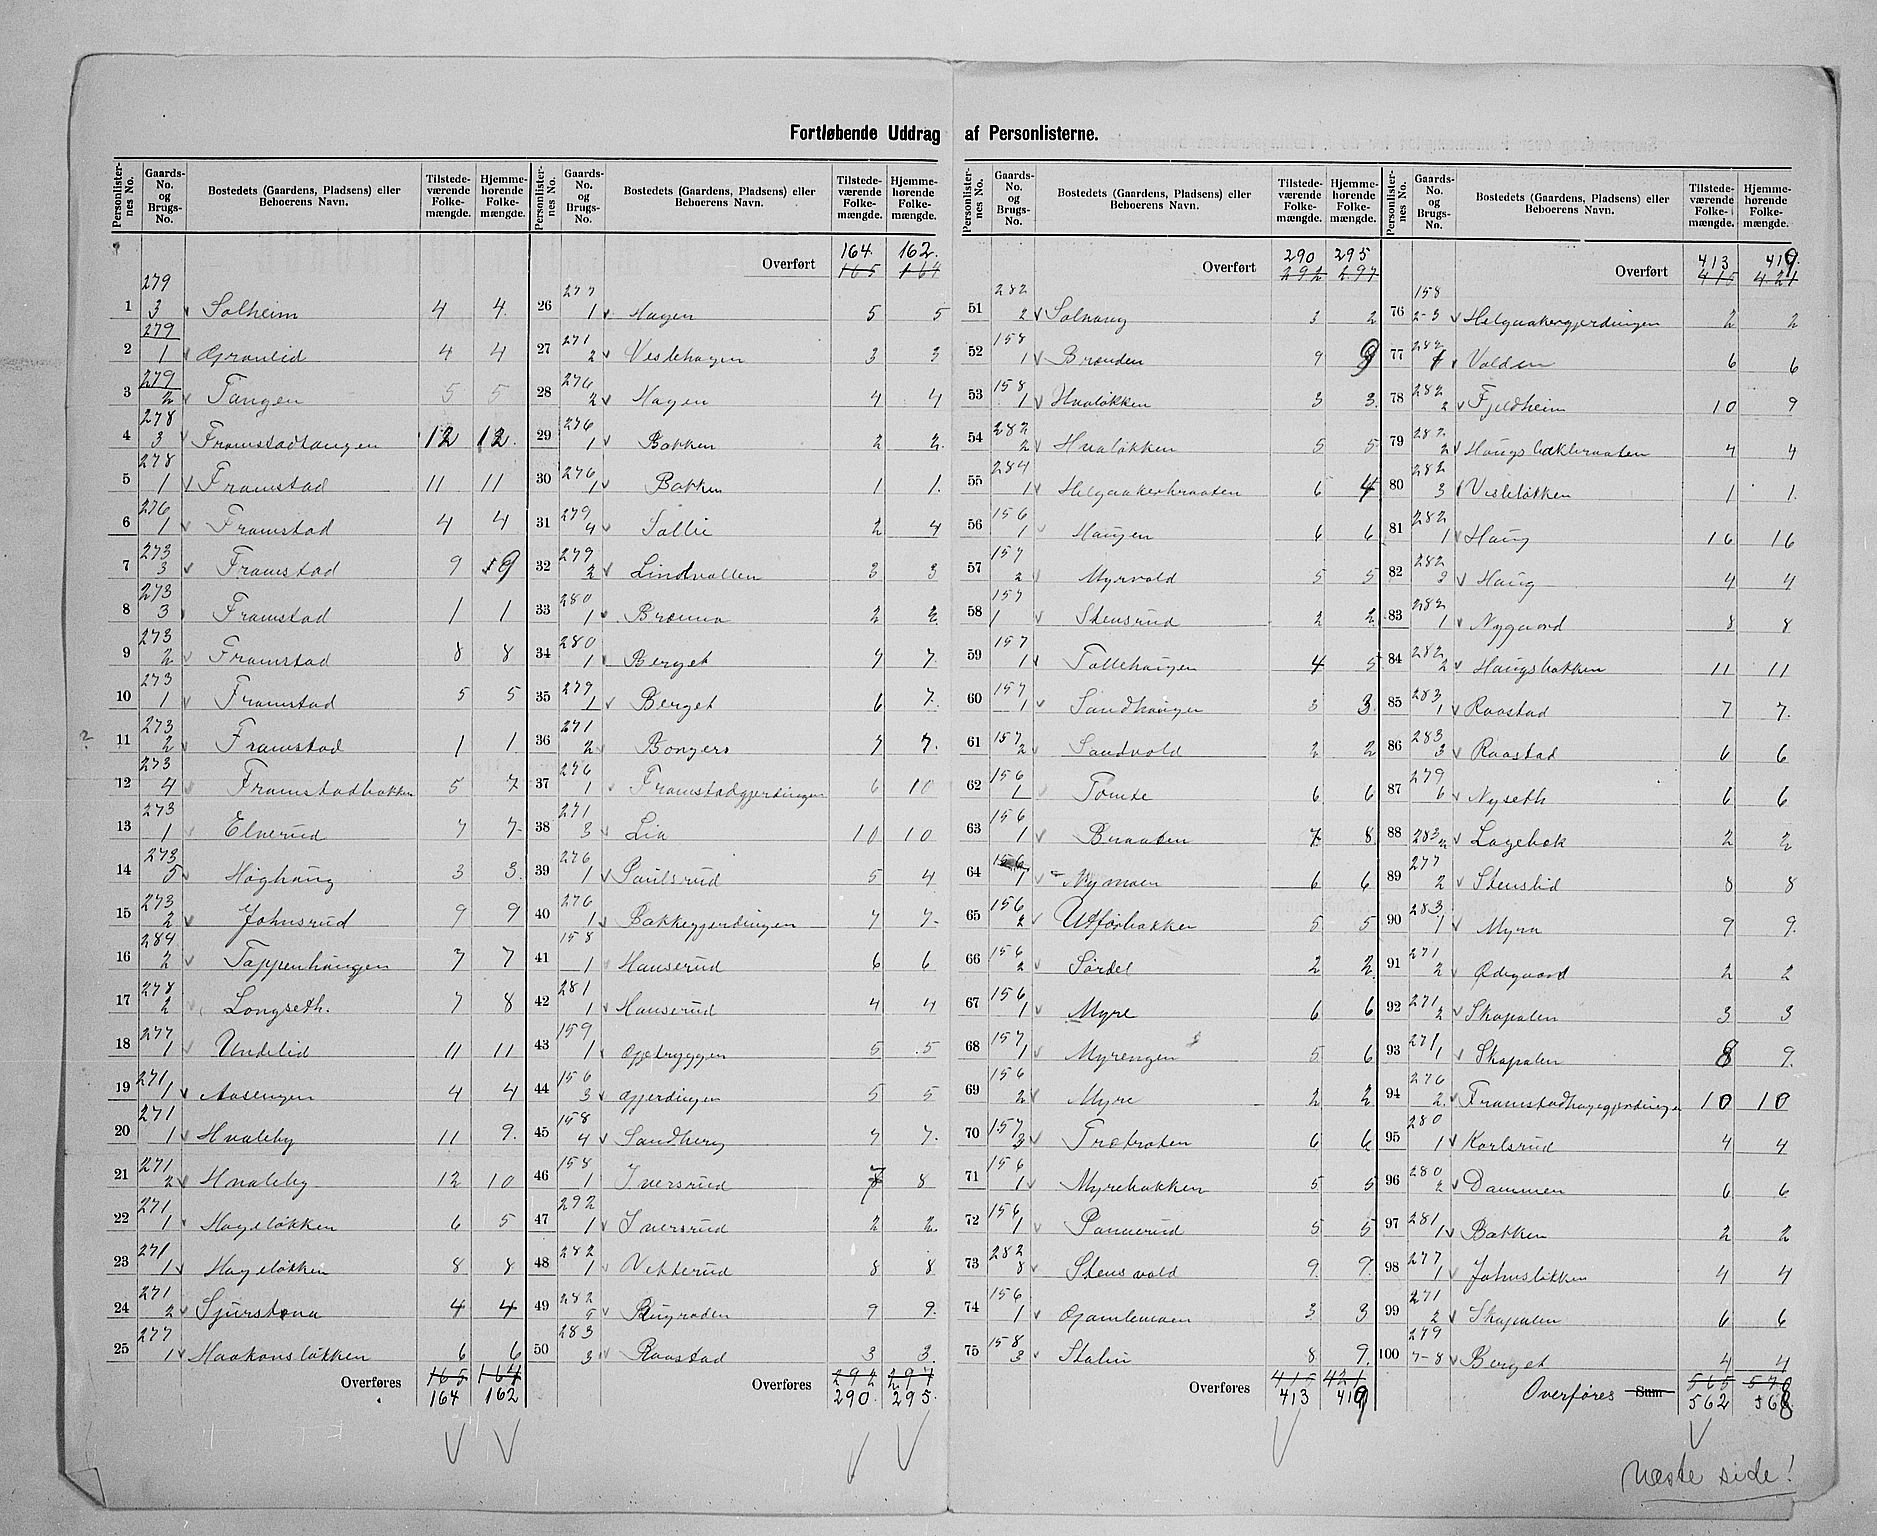 Fortløbende Uddrag af Personlisterne.
Personlister-nes No. | Gaards-No. og Brugs-No. | Bostedets (Gaardens, Pladsens) eller Beboerens Navn. | Tilstede-værende Folke-mængde. | Hjemme-hørende Folke-mængde.
1 279 3 Solheim 4 4.
2 279 1 Grønlid 4 4
3 279 2 Tangen 5 5
4 278 3 Framstadtangen 12 12.
5 278 1 Framstad 11 11
6 276 1 Framstad 4 4
7 273 3 Framstad 9 9
8 273 3 Framstad 1 1
9 273 2 Framstad 8 8
10 273 1 Framstad 5 5
11 273 2 Framstad 1 1.
12 273 4 Framstadbakken 5 7
13 273 1 Elverud 7 7
14 273 5 Høghaug 3 3.
15 273 2 Johnsrud 9 9
16 284 2 Tappenhaugen 7 7
17 278 2 Longseth. 7 8
18 277 1 Undelid 11 11
19 271 1 Aasengen 4 4
20 271 1 Hvaleby 11 9.
21 271 2 Hvaleby 12 10
22 271 1 Hageløkken 6 5
23 271 1 Hageløkken 8 8
24 271 2 Sjurstøna 4 4
25 277 1 Haakonsløkken 6 6
Overføres 165 164
164 162
Personlister-nes No. | Gaards-No. og Brugs-No. | Bostedets (Gaardens, Pladsens) eller Beboerens Navn. | Tilstede-værende Folke-mængde. | Hjemme-hørende Folke-mængde.
164. 162.
Overført 165 164
26 277 1 Hagen 5 5
27 271 2 Veslehagen 3 3
28 276 2 Hagen 4 4
29 276 1 Bakken 2 2.
30 276 1 Bakken 1 1.
31 279 4 Sollie 2 4
32 279 2 Lindvollen 3 3
33 280 1 Brænna 2 2.
34 280 1 Berget 7 7.
35 279 1 Berget 6 7.
36 271 2 Bongers 7 7.
37 276 1 Framstadgjerdingen 6 10
38 271 3 Lia 10 10
39 276 1 Paulsrud 5 4
40 276 1 Bakkegjerdingen 7 7.
41 158 1 Hanserud 6 6
42 281 1 Hanserud 4 4
43 159 1 Opbryggen 5 5
44 156 3 Gjerdingen 5 5
45 158 4 Sandberg 7 7.
46 158 1 Iversrud 7 8
47 292 1 Iversrud 2 2.
48 282 1 Vetterud 8 8
49 282 5 Rugraden 9 9.
50 283 3 Raastad 3 3.
Overføres 292 297
290. 295.
Personlister-nes No. | Gaards-No. og Brugs-No. | Bostedets (Gaardens, Pladsens) eller Beboerens Navn. | Tilstede-værende Folke-mængde. | Hjemme-hørende Folke-mængde.
290 295
Overført 292 297
51 282 2 Solhaug 3 2
52 158 1 Brænden 9 9
53 158 1 Hvaløkken 3 3.
54 282 2 Hvaløkken 5 5
55 284 1 Helgaakerbraaten 6 4
56 156 1 Haugen 6 6
57 157 2 Myrvold 5 5
58 157 1 Stensrud 2 2.
59 157 1 Tollehaugen 4 5
60 157 1 Sandhaugen 3 3.
61 157 2 Sandvold 2 2
62 156 1 Tomte 6 6
63 156 1 Braaten 7 8
64 156 1 Nymoen 6 6
65 156 2 Utførbakken 5 5
66 156 2 Sørdel 2 2.
67 156 1 Myre 6 6
68 157 1 Myrengen 5 6
69 156 2 Myre 2 2
70 157 3 Trøtraten 6 6
71 156 1 Myrebakken 5 5
72 156 1 Pannerud 5 5
73 282 8 Stensvold 9. 9.
74 156 1 Gamlemoen 3 3
75 158 3 Stalin 8 9.
Overføres 415 421
413 419
Personlister-nes No. | Gaards-No. og Brugs-No. | Bostedets (Gaardens, Pladsens) eller Beboerens Navn. | Tilstede-værende Folke-mængde. | Hjemme-hørende Folke-mængde.
413 419.
Overført 415 421
76 158 2-3 Helgaakergjerdingen 2 2
77 282 1 Volden 6 6
78 282 2 Fjeldheim 10 9
79 282 2 Haugsbakbraaten 4 4
80 282 3 Vesleløkken 1 1.
81 282 1 Haug 16 16
82 282 3 Haug 4 4
83 282 1 Nygaard 8 8
84 282 2 Haugsbakken 11 11
85 283 1 Raastad 7 7.
86 283 3 Raastad 6 6
87 279 6 Nyseth 6 6
88 283 2 Lagebæk 2 2
89 277 2 Stenslid 8 8
90 283 1 Myra 9 9.
91 271 2 Ødegaard 2 2
92 271 2 Skapalen 3 3
93 271 1 Skapalen 8 9.
94 276 2. Framstadhagegjerdingen 10 10
95 280 1 Karlsrud 4 4
96 280 2 Dammen 6 6
97 281 1 Bakken 2 2
98 277 1 Johnsløkken 4 4
99 271 2 Skapalen 6 6
100 279 7-8 Berget 4 4
Overføres Sum 565 570
562 568
Næste side!